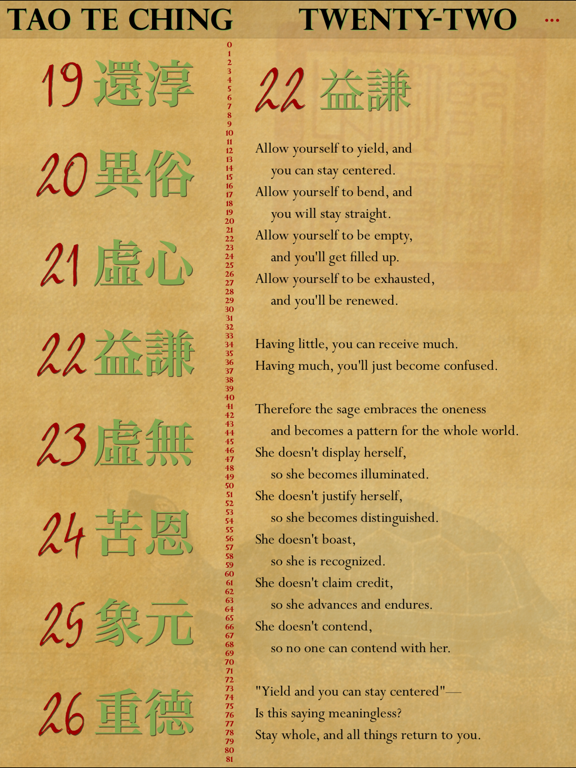 TAO TE CHING
TWENTY-TWO
...
19 還淳
20 異俗
21 虛心
22 益謙
23 虛無
24 苦恩
25 象元
26 重德
0
1
2
3
4
5
6
7
8
9
10
11
12
13
14
15
16
17
18
19
20
21
22
23
24
25
26
27
28
29
30
31
32
33
34
35
36
37
38
39
40
41
42
43
44
45
46
47
48
49
50
51
52
53
54
55
56
57
58
59
60
61
62
63
64
65
66
67
68
69
70
71
72
73
74
75
76
77
78
79
80
81
22 益謙
Allow yourself to yield, and
you can stay centered.
Allow yourself to bend, and
you will stay straight.
Allow yourself to be empty,
and you'll get filled up.
Allow yourself to be exhausted,
and you'll be renewed.
Having little, you can receive much.
Having much, you'll just become confused.
Therefore the sage embraces the oneness
and becomes a pattern for the whole world.
She doesn't display herself,
so she becomes illuminated.
She doesn't justify herself,
so she becomes distinguished.
She doesn't boast,
so she is recognized.
She doesn't claim credit,
so she advances and endures.
She doesn't contend,
so no one can contend with her.
"Yield and you can stay centered"—
Is this saying meaningless?
Stay whole, and all things return to you.